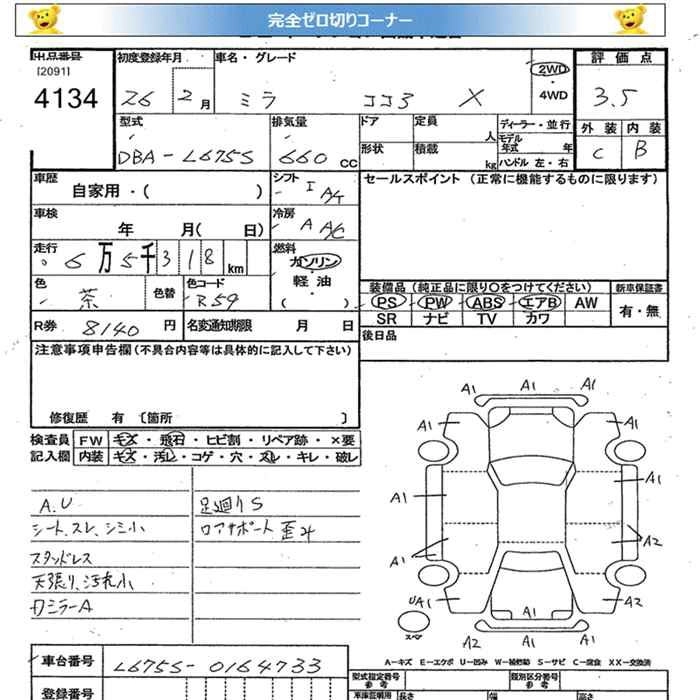 完全ゼロ切りコーナー
出品番号 初度登録年月 車名・グレード 評価点
[2091]
4134 26 2月 ミラ ココア X 2WD ・ 4WD 3.5
型式 排気量 ドア 定員 人 ディーラー・並行 外装 内装
モデル年式 年
DBA-L675S 660 CC 形状 積載 kg ハンドル 左・右 C B
車歴 シフト セールスポイント (正常に機能するものに限ります)
自家用・( ) I A/T
車検 冷房
年 月( 日) A A/C
走行 燃料
6万5千318km ガソリン・
軽油・
( )
色 色替 色コード 装備品 (純正品に限り〇をつけてください) 新車保証書
茶 R59 PS PW ABS エアB AW 有・無
SR ナビ TV カワ
R券 8140 円 名変通知期限 月 日 後日品
注意事項申告欄 (不具合内容等は具体的に記入して下さい)
修復歴 有 [箇所 ]
検査員 FW キズ・飛石・ヒビ割・リペア跡・×要
記入欄 内装 キズ・汚レ・コゲ・穴・スレ・キレ・破レ
A1 A1 A1
A1 A1
A.U 足廻りS
A1 A1
シート、スレ、シミ小 ロアサポート歪み
A1 A2
スタッドレス
天張り、汚れ小
Rミラー A
UA1 A2
スペア
A2 A1 A1
A-キズ E-エクボ U-凹み W-補修跡 S-サビ C-腐食 XX-交換済
車台番号 L675S-0164733 型式指定番号 参考 類別区分番号 参考
登録番号 車庫証明用 長さ 幅 高さ